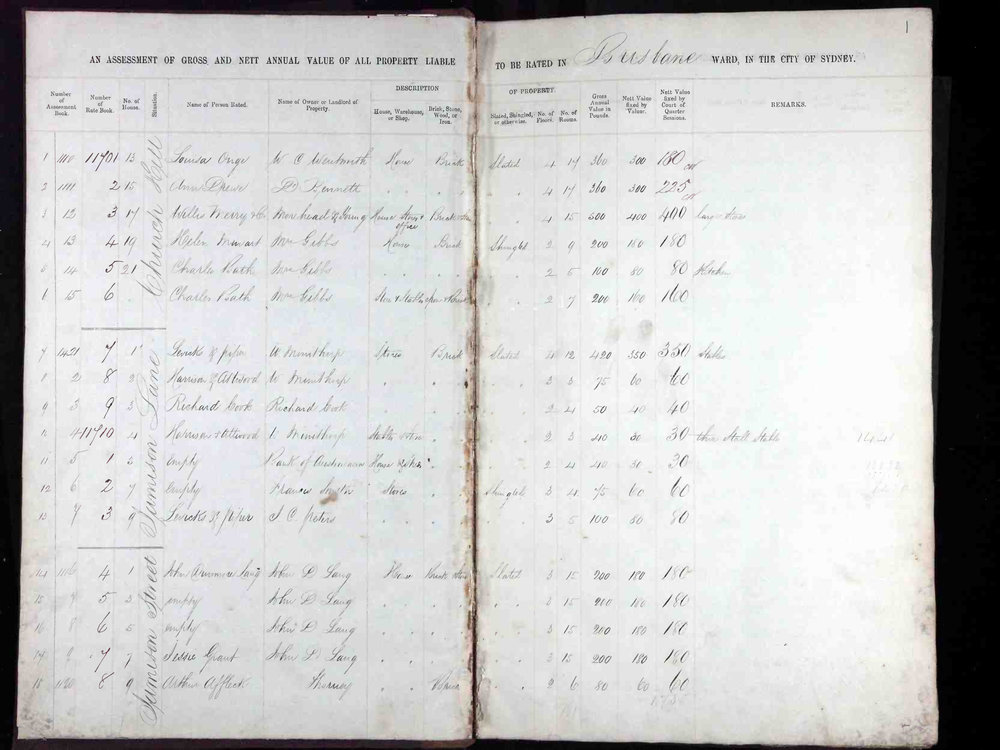 1
AN ASSESSMENT OF GROSS AND NETT ANNUAL VALUE OF ALL PROPERTY LIABLE TO BE RATED IN Brisbane WARD, IN THE CITY OF SYDNEY.
Number of Assessment Book. Number of Rate Book. No. of House. Situation. Name of Person Rated. Name of Owner or Landlord of Property. DESCRIPTION OF PROPERTY. House, Warehouse, or Shop. Brick, Stone, Wood, or Iron. Slated, Shingled, or otherwise. No. of Floors. No. of Rooms. Gross Annual Value in Pounds. Nett Value fixed by Valuer. Nett Value fixed by Court of Quarter Sessions. REMARKS.
Church Hill
1 1110 11701 13 Louisa W C Wentworth House Brick Slated 4 17 360 300 180
2 1111 2 15 Ann 4 17 360 300 225
3 12 3 17 Willis Merry & Co Morehead & Young House Store & office 4 15 500 400 400 large stores
4 13 4 19 Helen Mrs Gibbs House Brick Shingled 2 9 200 180 180
5 14 5 21 Charles Bath Mrs Gibbs 2 5 100 80 80 Kitchen
6 15 6 Charles Bath Mrs Gibbs 2 7 200 160 160
Jamison Lane
7 1421 7 1 Levicks & Piper W Minithorp Stores Brick Slated 4 12 420 350 350 Stables
8 2 8 2 Harrison & Attwood W Minithorp 3 3 75 60 60
9 3 9 3 Richard Cook Richard Cook 2 4 50 40 40
4 11710 4 Harrison & Attwood Minithorp 2 3 40 30 30 Stall Stable
11 5 1 5 empty Bank of Australasia House 2 4 40 30 30
12 6 2 7 empty Francis Stores Shingled 3 4 75 60 60
13 7 3 9 Levicks & Piper J C Peters 3 5 100 80 80
Jamison Street
14 1116 4 1 John Dunmore Lang John D Lang House Slated 3 15 200 180 180
15 7 5 3 empty John D Lang 3 15 200 180 180
16 8 6 5 empty John D Lang 3 15 200 180 180
9 7 7 Jessie Grant John D Lang 3 15 200 180 180
18 8 9 Arthur Affleck 2 6 80 60 60